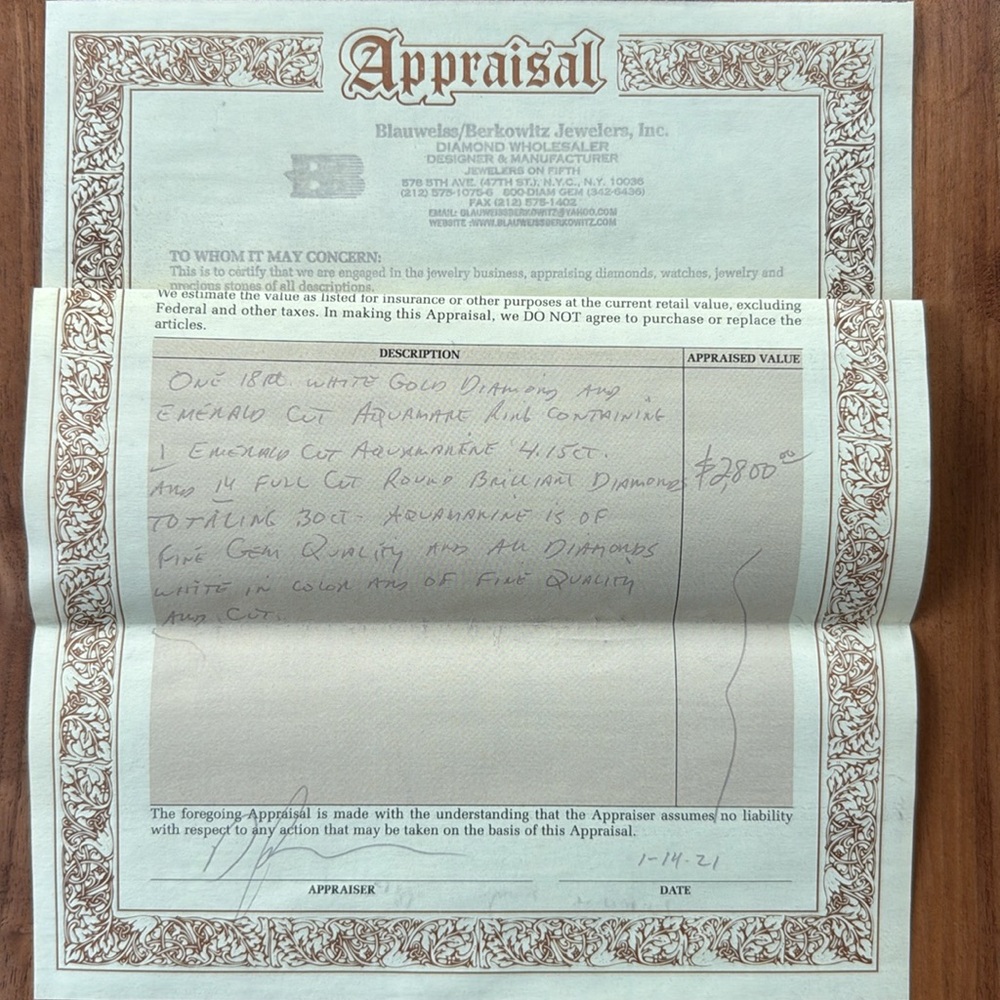 Appraisal
Blauweiss/Berkowitz Jewelers, Inc.
DIAMOND WHOLESALER
DESIGNER & MANUFACTURER
JEWELERS ON FIFTH
578 5TH AVE. (47TH ST.), N.Y.C., N.Y. 10036
(212) 575-1075-6 800-DIAM GEM (342-6436)
FAX (212) 575-1402
EMAIL: BLAUWEISSBERKOWITZ@YAHOO.COM
WEBSITE :WWW.BLAUWEISSBERKOWITZ.COM
TO WHOM IT MAY CONCERN:
This is to certify that we are engaged in the jewelry business, appraising diamonds, watches, jewelry and
precious stones of all descriptions.
We estimate the value as listed for insurance or other purposes at the current retail value, excluding
Federal and other taxes. In making this Appraisal, we DO NOT agree to purchase or replace the
articles.
DESCRIPTION APPRAISED VALUE
ONE 18KT. WHITE GOLD DIAMOND AND
EMERALD CUT RING CONTAINING
1 EMERALD CUT AQUAMARINE 4.15CT.
AND 14 FULL CUT ROUND BRILLIANT DIAMONDS $2,800.00
TOTALING .30CT. AQUAMARINE IS OF
FINE GEM QUALITY AND ALL DIAMONDS
WHITE IN COLOR AND OF FINE QUALITY
AND CUT.
The foregoing Appraisal is made with the understanding that the Appraiser assumes no liability
with respect to any action that may be taken on the basis of this Appraisal.
1-14-21
APPRAISER DATE